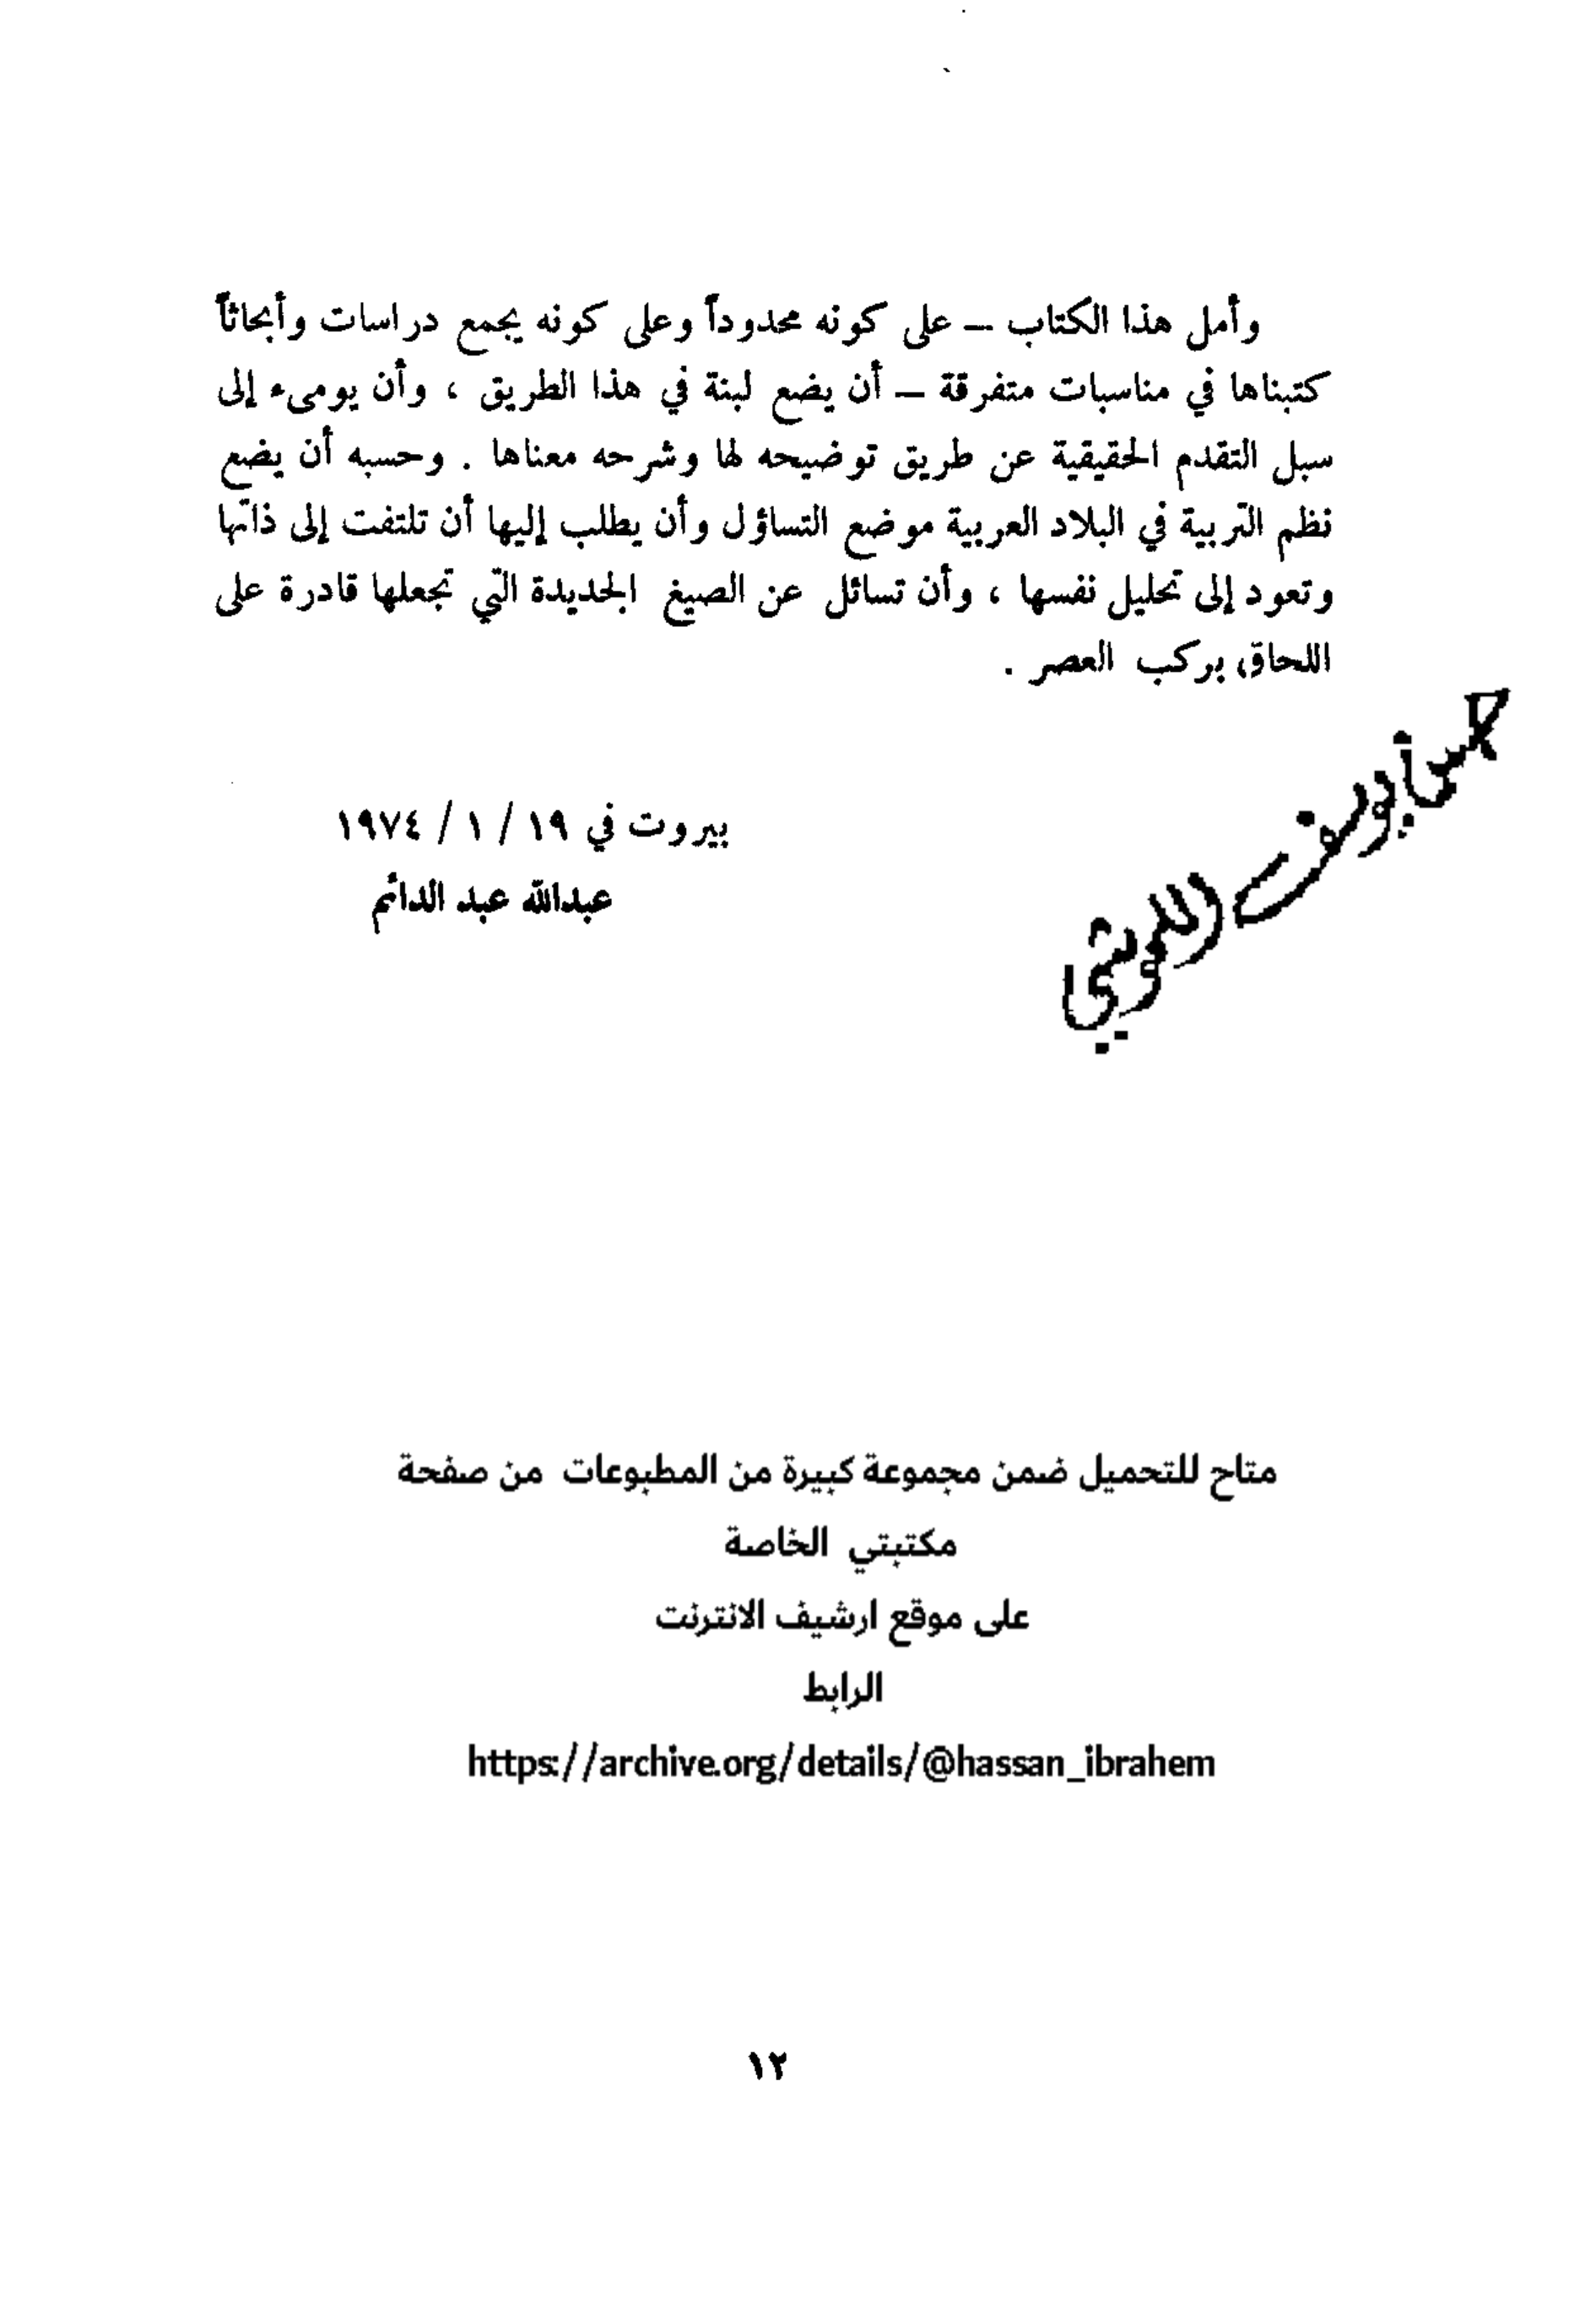 وأمل هذا الكتاب – على كونه محدوداً وعلى كونه يجمع دراسات وأبحاثاً
كتبناها في مناسبات متفرقة – أن يضع لبنة في هذا الطريق ، وأن يومىء إلى
سبل التقدم الحقيقية عن طريق توضيحه لها وشرحه معناها . وحسبه أن يضع
نظم التربية في البلاد العربية موضع التساؤل وأن يطلب إليها أن تلتفت إلى ذاتها
وتعود إلى تحليل نفسها ، وأن تسائل عن الصيغ الجديدة التي تجعلها قادرة على
اللحاق بركب العصر .
بيروت في ١٩ / ١ / ١٩٧٤
عبدالله عبد الدائم
متاح للتحميل ضمن مجموعة كبيرة من المطبوعات من صفحة
مكتبتي الخاصة
على موقع ارشيف الانترنت
الرابط
https://archive.org/details/@hassan_ibrahem
١٢